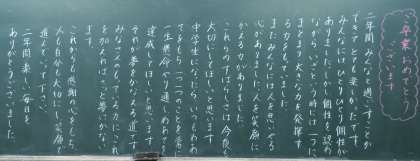 ご卒業おめでとう
ございます
二年間みんなと過ごすことが
できて、とても楽しかったです。
みんなにはひとりひとり個性が
ありました。しかし個性を認め
ながらいざという時には一つに
まとまり大きな力を発揮す
る力をもっていました。
またみんなには人を思いやる
心がありました。人を笑顔に
かえる力がありました。
これらのすばらしさは今後も
大切にしてほしいと思います。
中学生になったらいつもめあ
てをもち一つ一つのことを
一生懸命やり通しめあてを
達成してほしいと思います。
それが夢をかなえる道です。
みなさんのもっている力にこれ
を加えればきっと夢はかない
ます。
これからも感謝の心をもち、
人も自分も大切にし笑顔で
進んでいって下さい。
二年間楽しい毎日を
ありがとうございました。